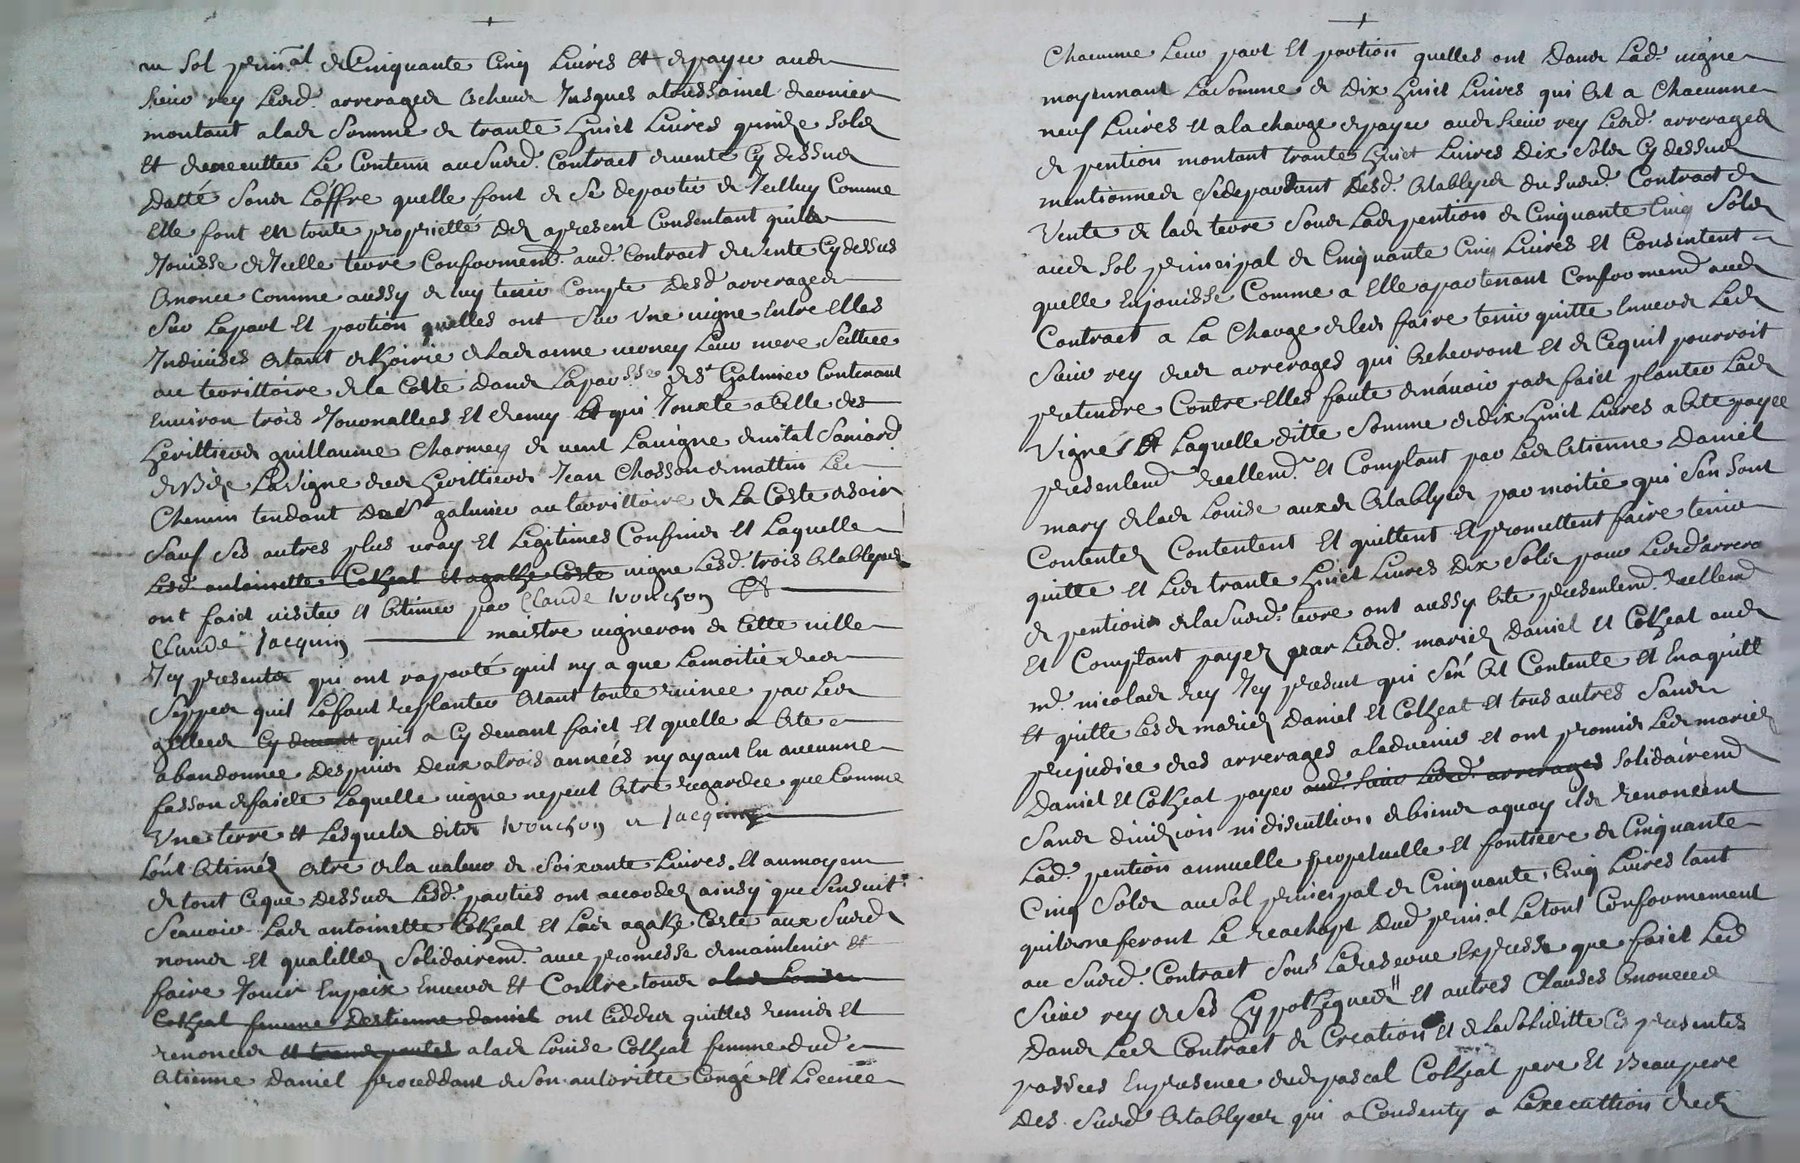 au sol prin.al de Cinquante Cinq Livres Et de payer aud.
Sieur rey Lesd. arrerages escheus Jusques a toussainct dernier
montant a lad. Somme de trante huict Livres quinze Solz
Et de executter Le Contenu au Susd. Contract de vente Cy dessus
datté Sous L'offre quelle font de Se departir de Jcelluy Comme
Elle font En toutte proprietté des apresent Consentant quil
Jouisse de Jcelle terre Conformem.t aud. Contract de vente Cy dessus
Enoncé Comme aussy de luy tenir Compte desd. arrerages
Sur La part Et portion quelles ont Sur Une vigne Entre Elles
Indivises Estant de hoirie de Lad. anne verney Leur mere Scittuée
au territtoire de la Coste dans La parsse de St Galmier Contenant
Environ trois Journallees Et demy Et qui Jouxte a Celle des
herittiers guillaume Charmey de vent La vigne de vital Saniard
de Bize La Vigne des herittiers Jean Chosson de mattin Le
Chemin tendant de St galmier au territtoire de La Coste de Soir
Sauf Ses autres plus vray Et Legitimes Confins Et Laquelle
Lesd. antoinette Colheat Et agathe Coste vigne Lesd. trois Establyes
ont faict visiter Et Estimer par Claude vouchon Et
Claude Jacquin maistre vigneron de Cette ville
Jcy presents qui ont raporté quil ny a que La moitié des
Seppes quil Lefaut replanter Estant toute ruinee par Les
gellees Cy devant quil a Cy devant faict Et quelle a Esté
abandonnee Despuis deux a trois années ny ayant Eu aucunne
fasson de faicte Laquelle vigne ne peut Estre regardee que Comme
Une terre Et Lesquels dits vouchon et Jacquin
L'ont Estimés Estre de la valeur de Soixante Livres. Et au moyen
de tout Ceque dessus Lesd. parties ont accordez ainsy que Sensuit
Scavoir Lad. antoinette Colheat Et Lad. agathe Coste aux Susd.
noms Et qualittez Solidairem.t avec promesse de maintenir Et
faire Jouir En paix Envers Et Contre tous a lad. Louise
Colheat femme Destienne daniel ont Ceddez quittes remis Et
renoncer a lad. Louise Colheat femme dud.
Etienne daniel proceddant de Son autoritté Congé Et Licence
Chacunne Leur part Et portion quelles ont dans Lad. vigne
moyennant La Somme de dix huict Livres qui Est a Chacunne
neuf Livres Et a la charge de payer aud. Sieur rey Lesd. arrerages
de pention montant trante huict Livres dix Solz Cy dessus
mentionnes Se departant Lesd. Establyes du Susd. Contract de
Vente de lad. terre Sous Lad. pention de Cinquante Cinq Solz
aud. Sol principal de Cinquante Cinq Livres Et Consintent
quelle En jouisse Comme a Elle apartenant Conformem.t aud.
Contract a La Charge de les faire tenir quitte Envers Led.
Sieur rey des arrerages qui Echerront Et de Cequil pourroit
pretendre Contre Elles faute de n'avoir pas faict planter Lad.
Vigne Et Laquelle ditte Somme de dix huict Livres a Esté payée
presentem.t reellem.t Et Comptant par Led. Etienne daniel
mary de lad. Louise auxd. Establyes par moitié qui S'en Sont
Contentez Contentent Et quittent Et promettent faire tenir
quitte Et Les trante huict Livres dix Solz pour Lesd. arrera
de pentions de la Susd. terre ont aussy Esté presentem.t reellem.t
Et Comptant payez par Lesd. mariez daniel Et Colheat aud.
m.e nicolas rey Jcy present qui S'en Est Contenté Et En a quitté
Et quitte Lesd. mariez Daniel Et Colheat Et tous autres Sans
prejudice des arrerages a ladvenir Et ont promis Lesd. mariez
Daniel Et Colheat payer aud. Sieur Lesd. arrerages Solidairem.t
Sans divizion ni discuttion de biens aquoy ils renoncent
Lad. pention annuelle perpetuelle Et fontiere de Cinquante
Cinq Solz au Sol principal de Cinquante Cinq Livres tant
quils ne feront Le reachapt dud. prin.al Le tout Conformement
au Susd. Contract Sous La reserve Expresse que faict Led.
Sieur rey de Ses hypotheques Et autres Clauses Enoncees
dans Led. Contract de Creation Et de La Soliditté Cy presentes
passées En presence dud. pascal Colheat pere Et Beaupere
des Susd. Establyes qui a Consenty a Lexecuttion des